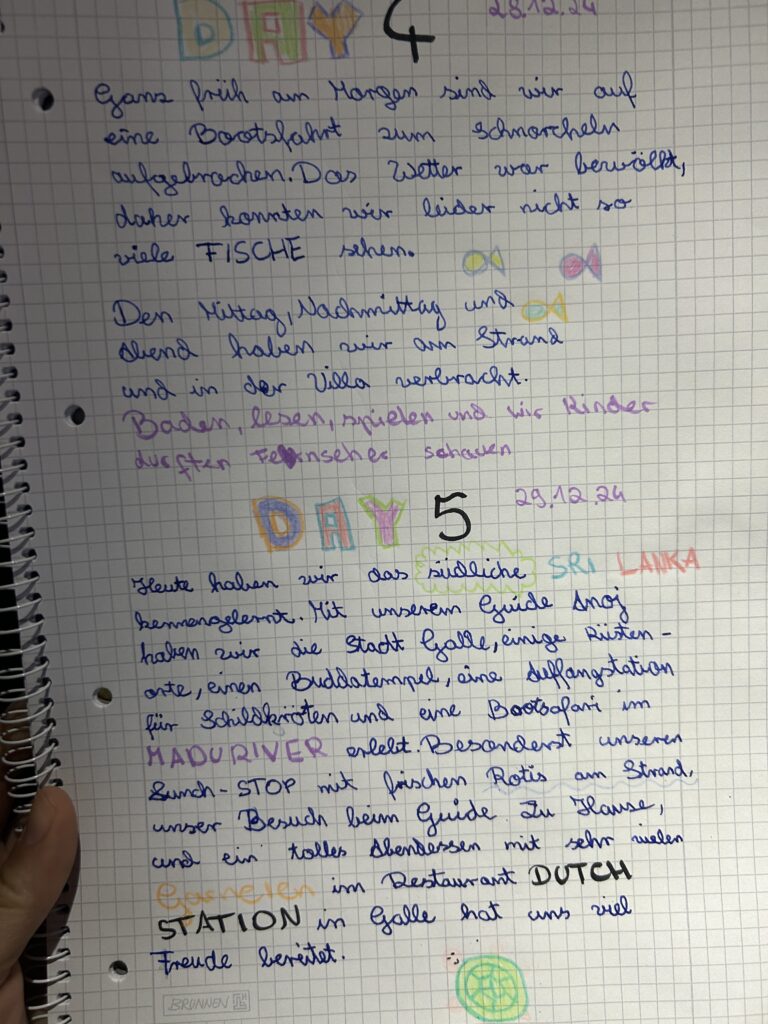 DAY 4 28.12.24
Ganz früh am Morgen sind wir auf
eine Bootsfahrt zum Schnorcheln
aufgebrochen. Das Wetter war bewölkt,
daher konnten wir leider nicht so
viele FISCHE sehen.
Den Mittag, Nachmittag und
Abend haben wir am Strand
und in der Villa verbracht.
Baden, lesen, spielen und wir Kinder
durften Fernseher schauen
DAY 5 29.12.24
Heute haben wir das südliche SRI LANKA
kennengelernt. Mit unserem Guide Anoj
haben wir die Stadt Galle, einige Küsten-
orte, einen Buddatempel, eine Auffangstation
für Schildkröten und eine Bootsafari im
MADURIVER erlebt. Besonderst unseren
Lunch-STOP mit frischen Rotis am Strand,
unser Besuch beim Guide Zu Hause,
und ein tolles Abendessen mit sehr vielen
Garnelen im Restaurant DUTCH
STATION in Galle hat uns viel
Freude bereitet.
BRUNNEN